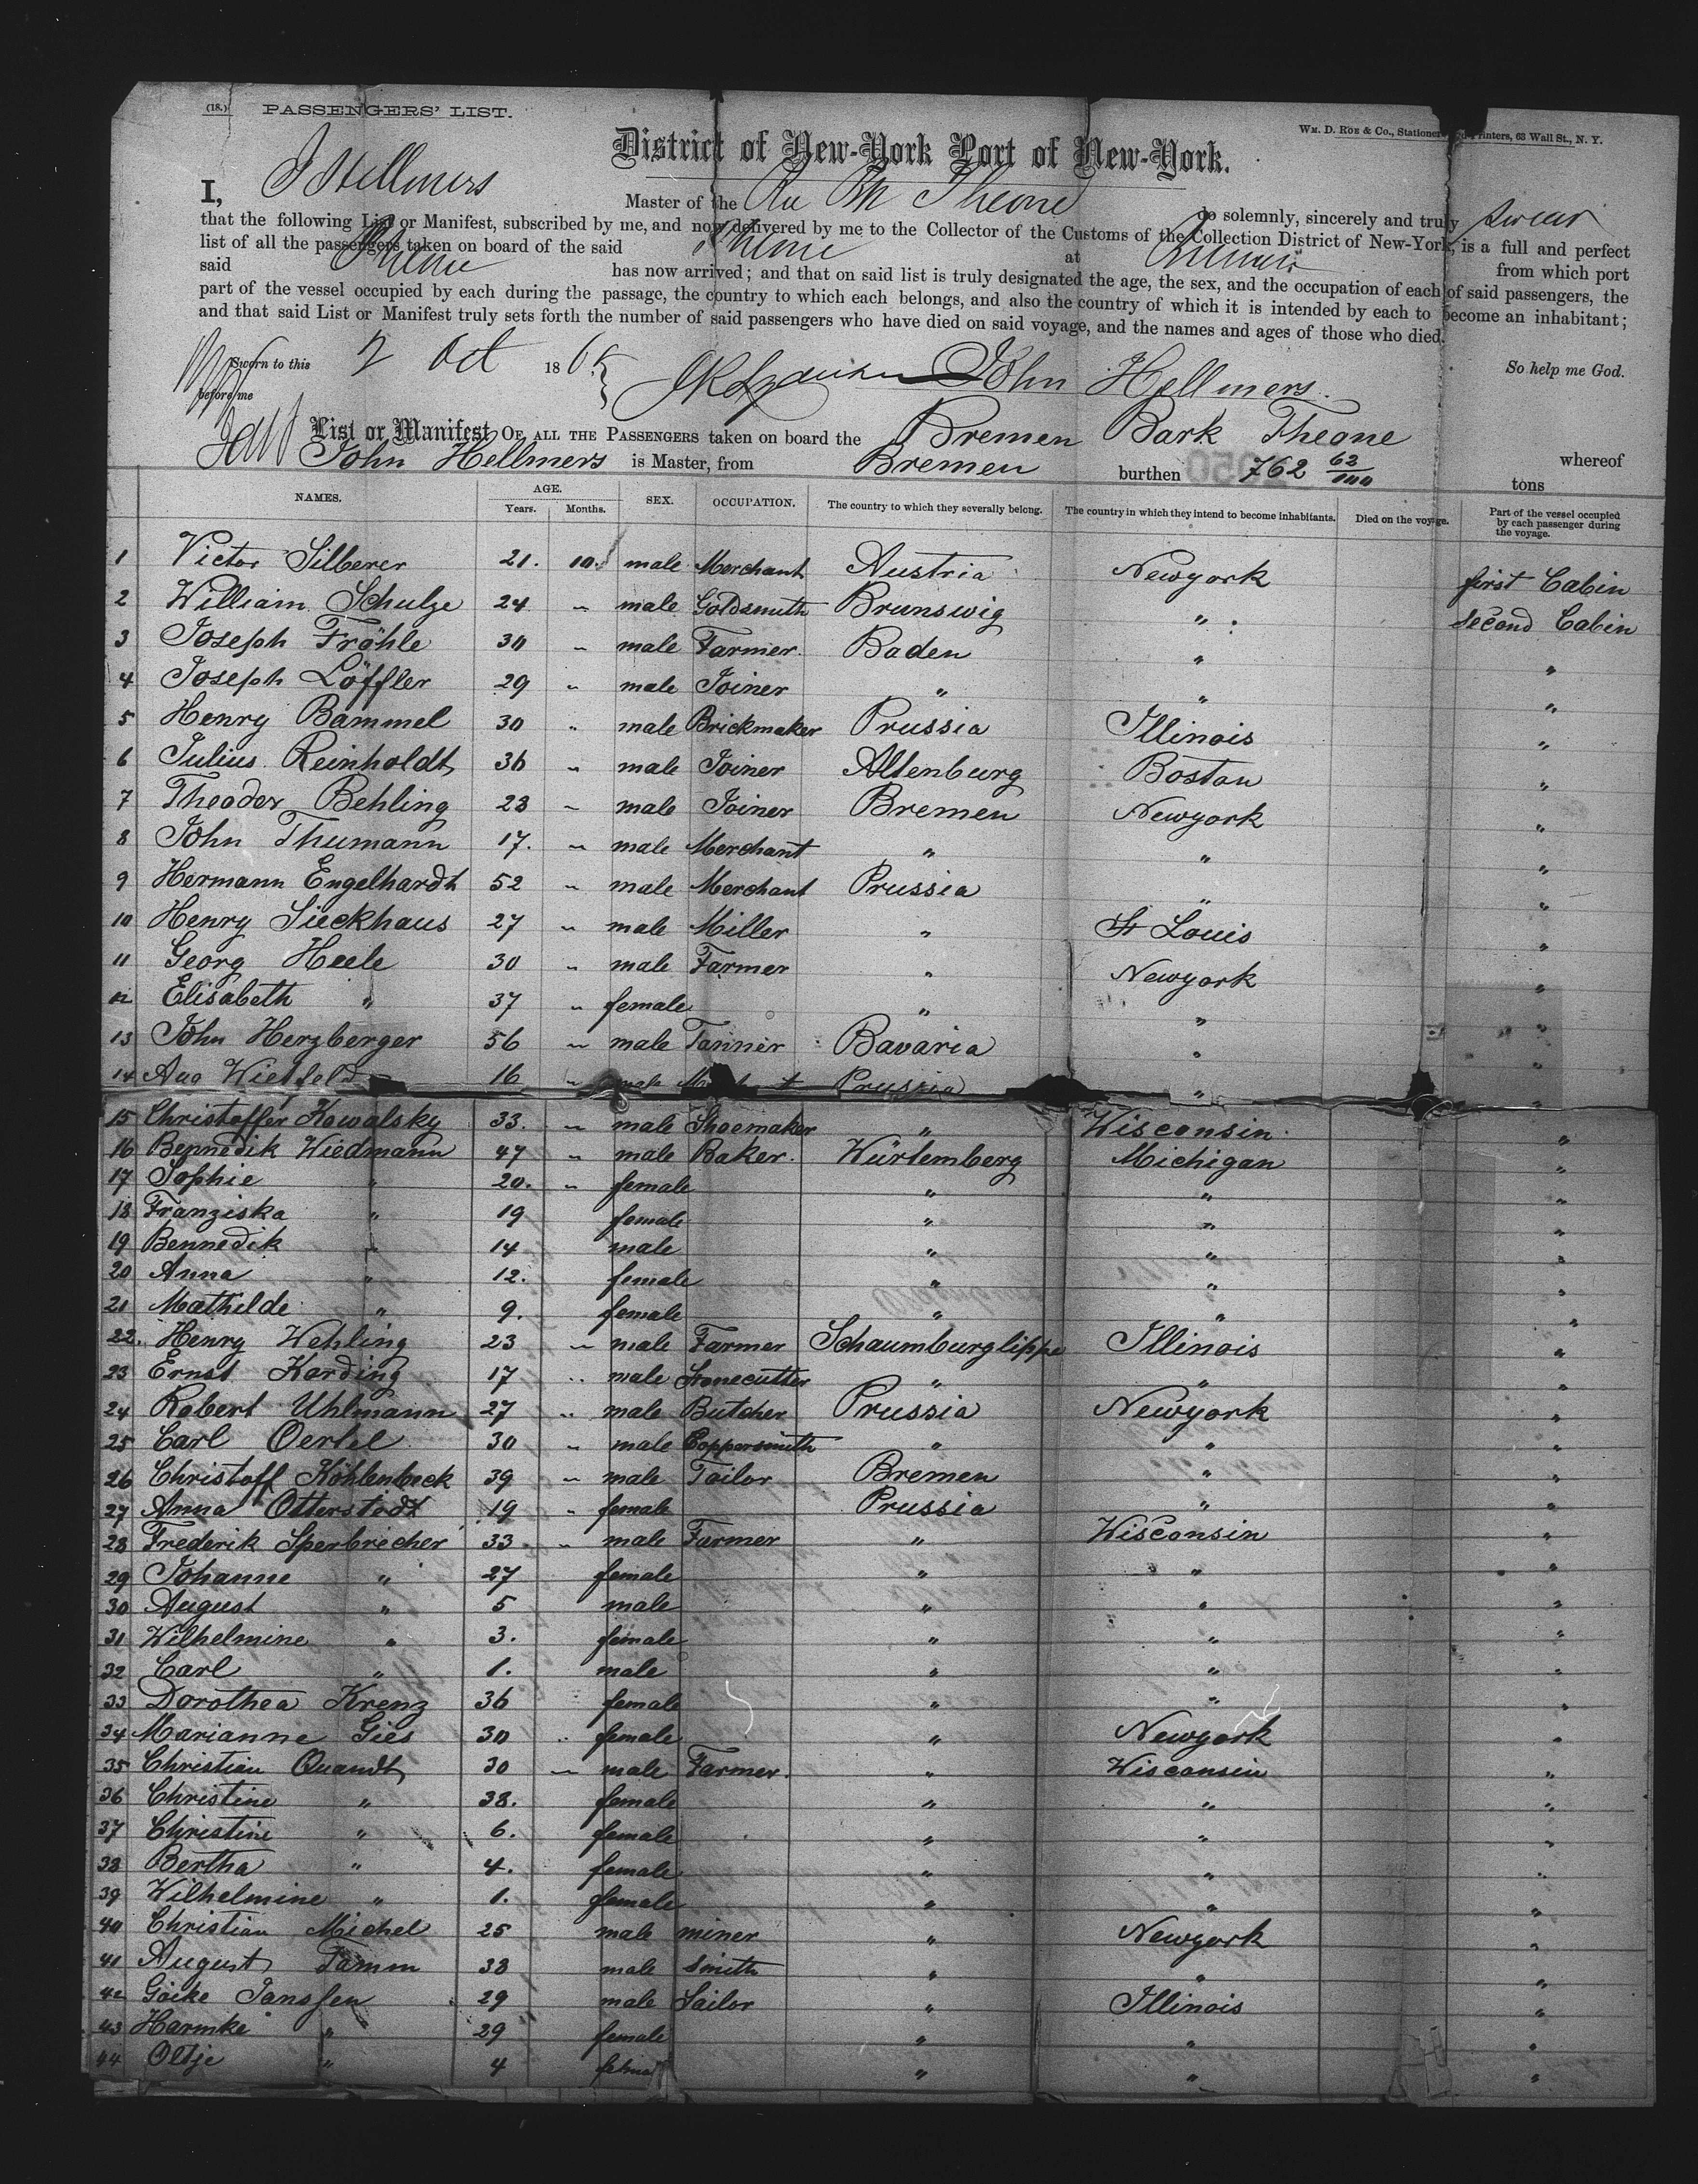 (18.) PASSENGERS' LIST.
WM. D. ROE & Co., Stationers and Printers, 63 Wall St., N. Y.
District of New-York Port of New-York.
I, J Hellmers Master of the Theone do solemnly, sincerely and truly swear
that the following List or Manifest, subscribed by me, and now delivered by me to the Collector of the Customs of the Collection District of New-York, is a full and perfect
list of all the passengers taken on board of the said Theone at Bremen from which port
said Theone has now arrived; and that on said list is truly designated the age, the sex, and the occupation of each of said passengers, the
part of the vessel occupied by each during the passage, the country to which each belongs, and also the country of which it is intended by each to become an inhabitant;
and that said List or Manifest truly sets forth the number of said passengers who have died on said voyage, and the names and ages of those who died.
Sworn to this 2 Oct 186 So help me God.
before me John Hellmers.
List or Manifest OF ALL THE PASSENGERS taken on board the Bremen Bark Theone whereof
John Hellmers is Master, from Bremen burthen 762 62/100 tons
NAMES. AGE. Years. Months. SEX. OCCUPATION. The country to which they severally belong. The country in which they intend to become inhabitants. Died on the voyage. Part of the vessel occupied by each passenger during the voyage.
1 Victor Silberer 21. 10. male Merchant Austria Newyork first Cabin
2 William Schulze 24 " male Goldsmith Brunswig " second Cabin
3 Joseph Fröhle 30 " male Farmer. Baden " "
4 Joseph Löffler 29 " male Joiner " " "
5 Henry Bammel 30 " male Brickmaker Prussia Illinois "
6 Julius Reinholdt 36 " male Joiner Altenburg Boston "
7 Theodor Behling 23 " male Joiner Bremen Newyork "
8 John Thumann 17. " male Merchant " " "
9 Hermann Engelhardt 52 " male Merchant Prussia " "
10 Henry Sieckhaus 27 " male Miller " St Louis "
11 Georg Heele 30 " male Farmer " Newyork "
12 Elisabeth " 37 " female " " "
13 John Herzberger 56 " male Tanner Bavaria " "
14 Aug Wietfeld 16 " male Merchant Prussia " "
15 Christoffer Kowalsky 33. " male Shoemaker " Wisconsin "
16 Bennedik Wiedmann 47 " male Baker. Würtemberg Michigan "
17 Sophie " 20. " female " " "
18 Franziska " 19 female " " "
19 Bennedik " 14 male " " "
20 Anna " 12. female " " "
21 Mathilde " 9. female " " "
22. Henry Wehling 23 " male Farmer Schaumburglippe Illinois "
23 Ernst Harding 17 " male Stonecutter " " "
24 Robert Uhlmann 27 " male Butcher Prussia Newyork "
25 Carl Oertel 30 " male Coppersmith " " "
26 Christoff Köhlenbeck 39 " male Tailor Bremen " "
27 Anna Otterstedt 19 " female Prussia " "
28 Frederik Sperbricher 33. " male Farmer " Wisconsin "
29 Johanne " 27 female " " "
30 August " 5 male " " "
31 Wilhelmine " 3. female " " "
32 Carl " 1. male " " "
33 Dorothea Krenz 36 female " " "
34 Marianne Gies 30 " female " Newyork "
35 Christian Quandt 30 " male Farmer. " Wisconsin "
36 Christine " 38. female " " "
37 Christine " 6. female " " "
38 Bertha " 4. female " " "
39 Wilhelmine " 1. female " " "
40 Christian Michel 25 male miner " Newyork "
41 August Tamm 38 male Smith " " "
42 Göike Janssen 29 male Sailor " Illinois "
43 Harmke " 29 female " " "
44 Oltje " 4 female " " "